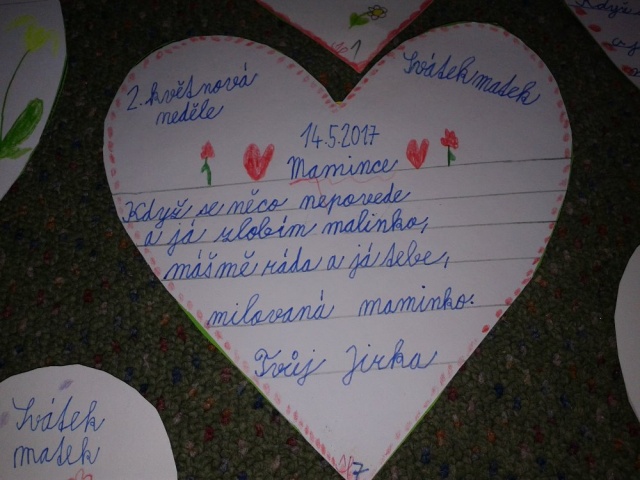 2. květnová
neděle
Svátek matek
14.5.2017
Mamince
Když se něco nepovede
a já zlobím malinko,
máš mě ráda a já tebe,
milovaná maminko.
Tvůj Jirka
7
1
Když
a já
Svátek
matek